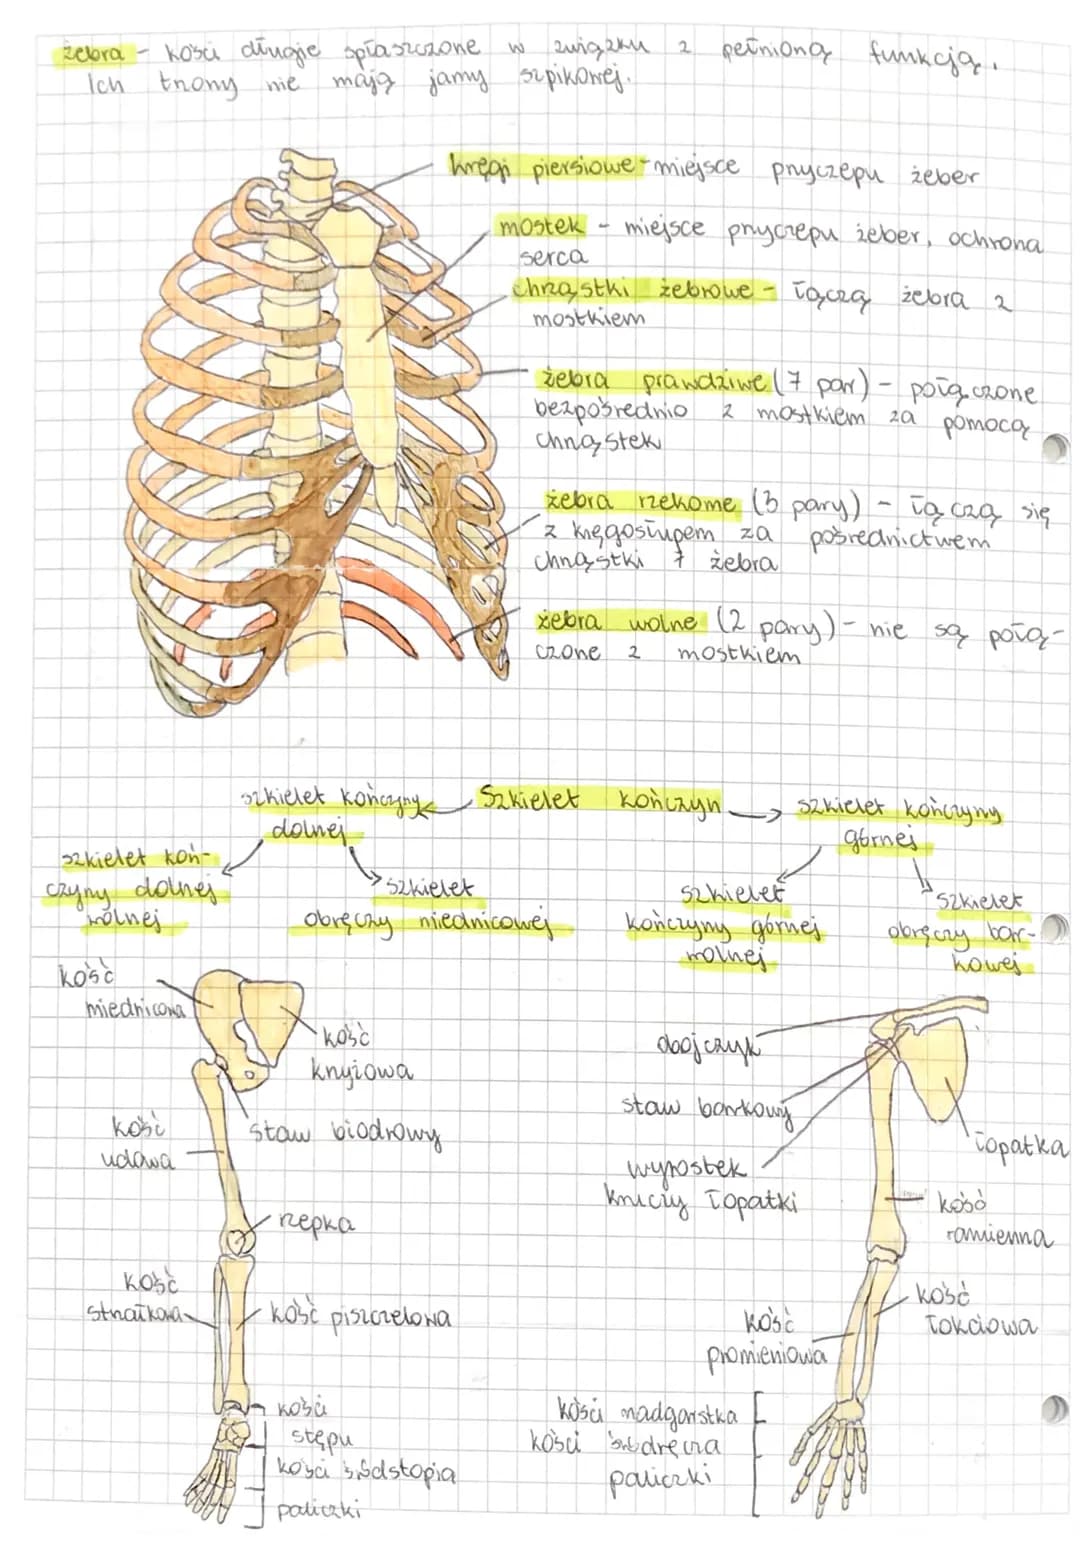 żebra - kości długie spłaszczone w związku z pełnioną funkcją.
Ich trzony nie mają jamy szpikowej.
kręgi piersiowe - miejsce przyczepu żeber
mostek - miejsce przyczepu żeber, ochrona
serca
chrząstki żebrowe - łączą żebra z
mostkiem
żebra prawdziwe (7 par) - połączone
bezpośrednio z mostkiem za pomocą
chrząstek
żebra rzekome (3 pary) - łączą się
z kręgosłupem za pośrednictwem
chrząstki 7 żebra
żebra wolne (2 pary) - nie są połą-
czone z mostkiem
Szkielet kończyn
szkielet kończyny
dolnej
szkielet koń-
czyny dolnej
wolnej
szkielet
obręczy miednicowej
szkielet kończyny
górnej
szkielet
kończyny górnej
wolnej
szkielet
obręczy bar-
kowej
kość
miednicowa
kość
krzyżowa
staw biodrowy
kość
udowa
rzepka
kość
strzałkowa
kość piszczelowa
kości
stępu
kości śródstopia
paliczki
obojczyk
staw barkowy
wyrostek
kruczy łopatki
łopatka
kość
ramienna
kość
łokciowa
kość
promieniowa
kości nadgarstka
kości śródręcza
paliczki